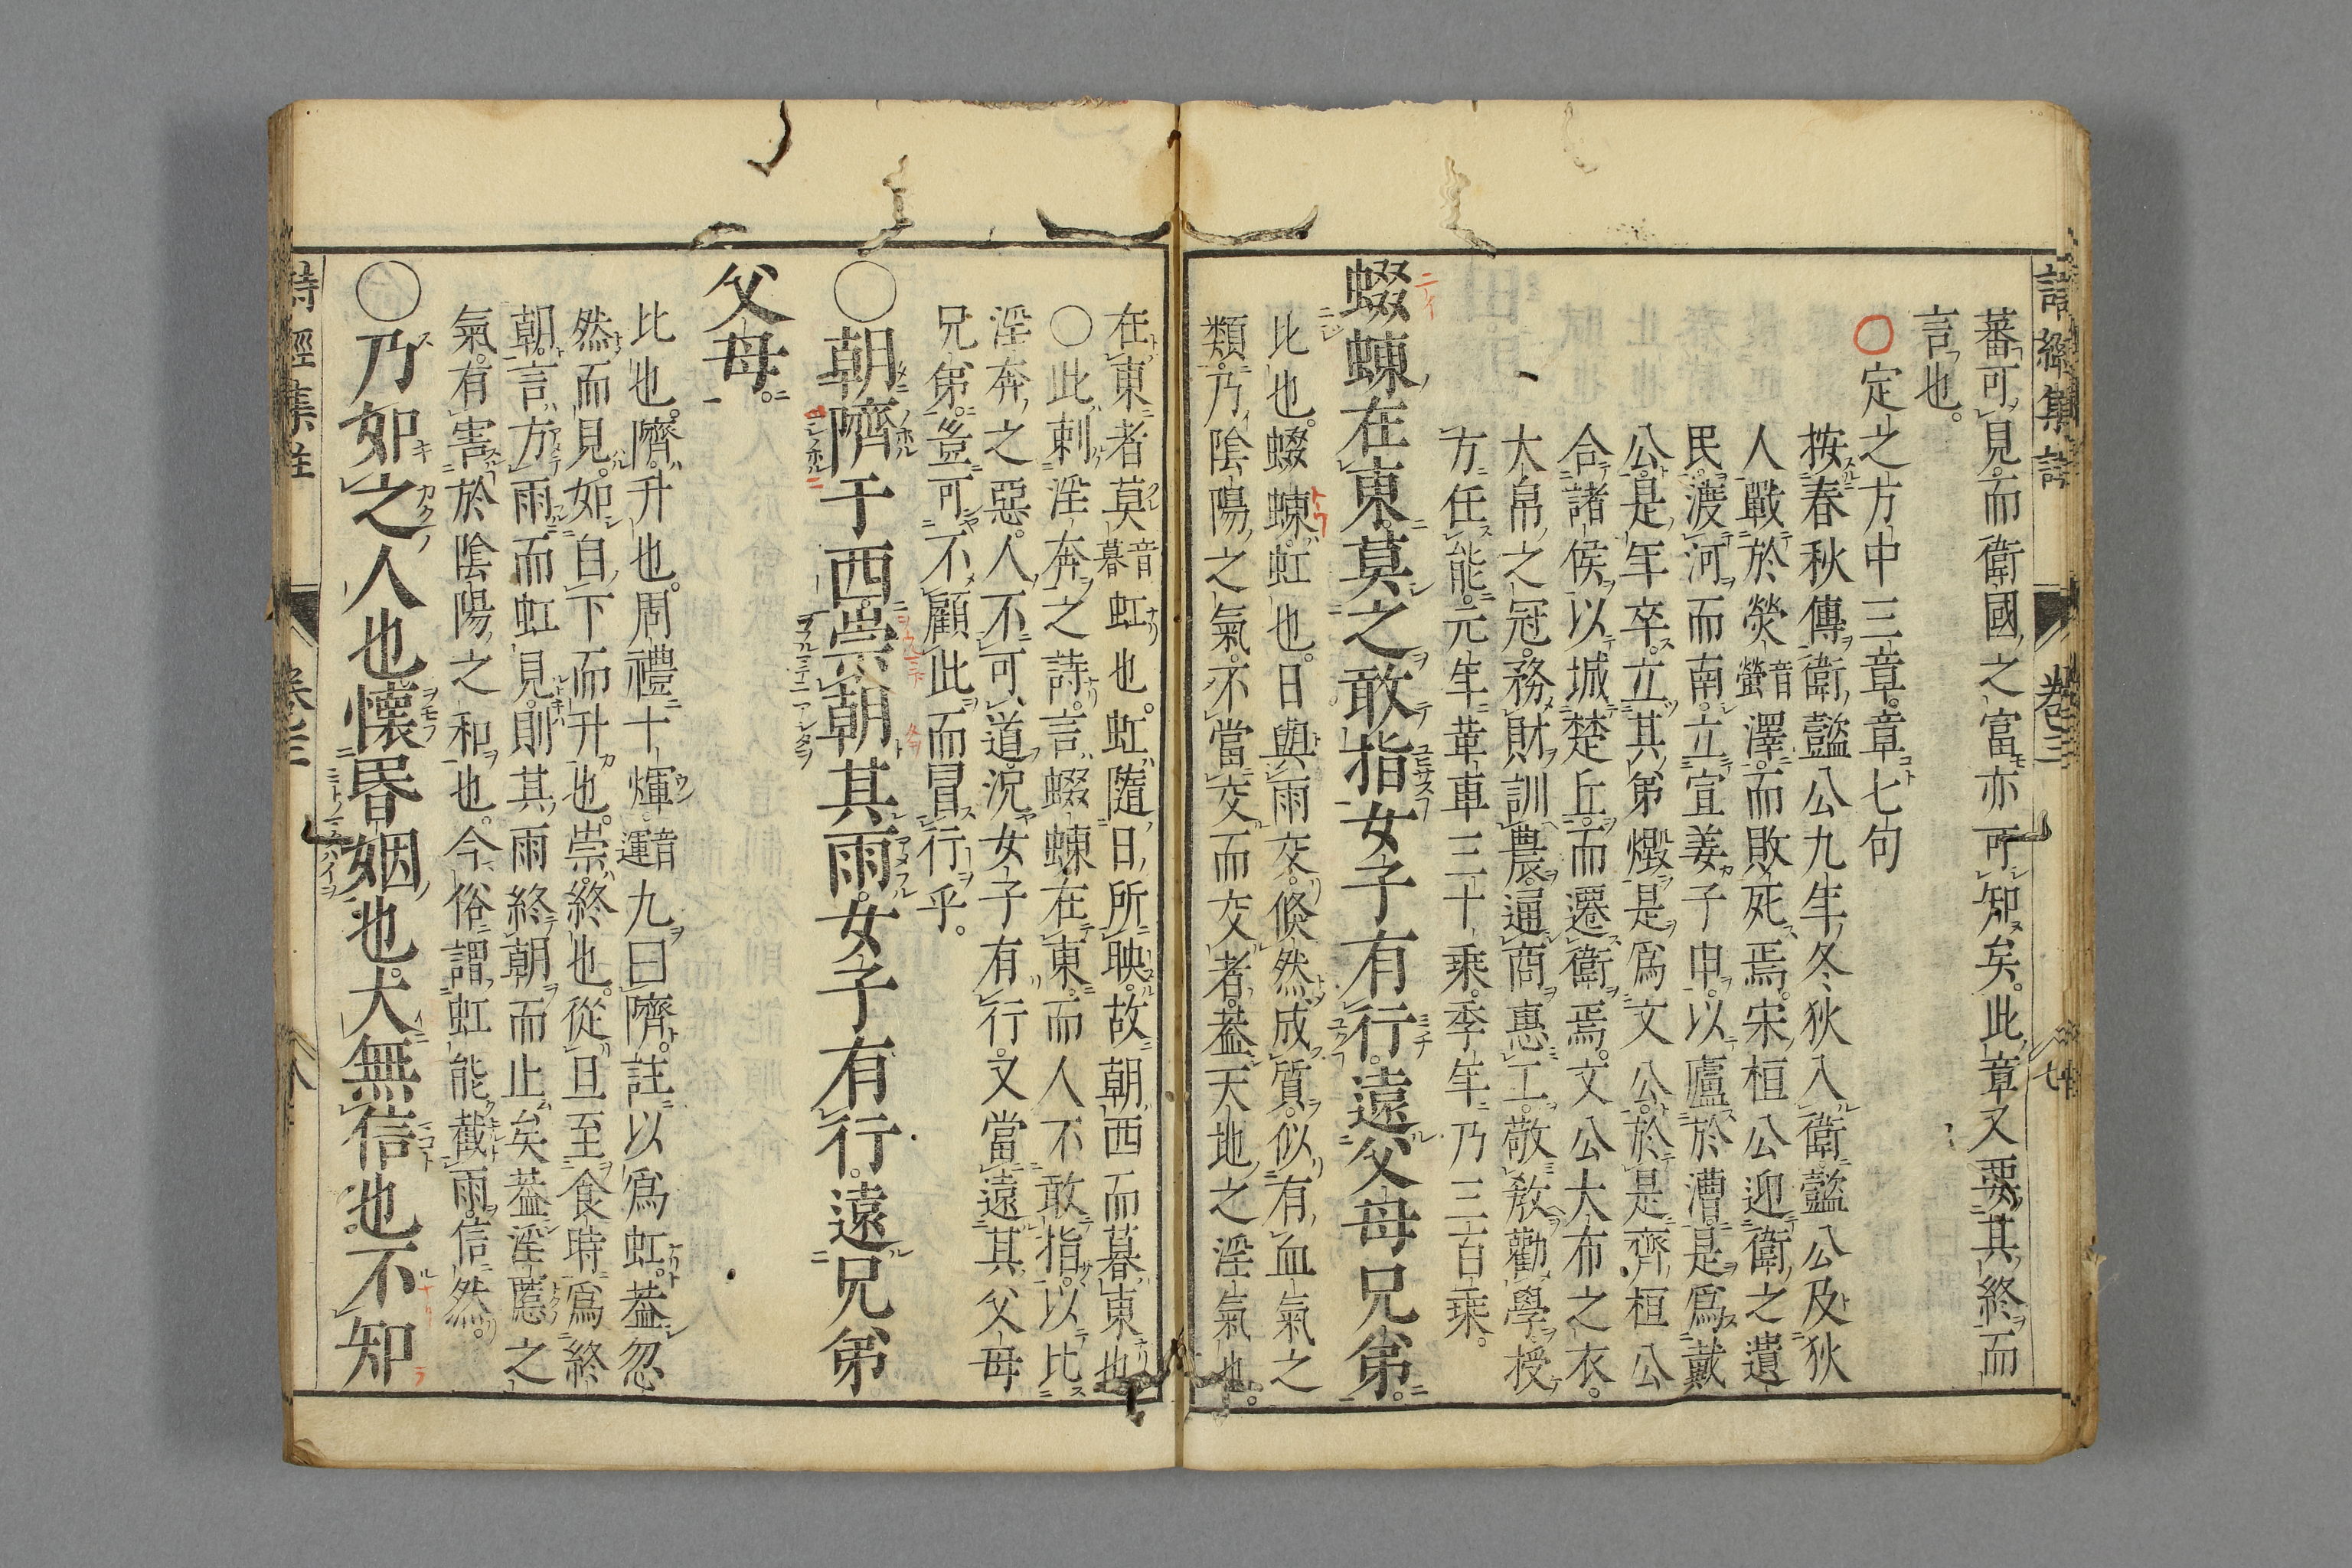 詩經集註 卷三 七
蕃可見而衞國之富亦可知矣此章又要其終而
言也
○定之方中三章章七句
按春秋傳衞懿公九年冬狄入衞懿公及狄
人戰於熒音螢澤而敗死焉宋桓公迎衞之遺
民渡河而南立宣姜子申以廬於漕是爲戴
公是年卒立其弟燬是爲文公於是齊桓公
合諸侯以城楚丘而遷衞焉文公大布之衣
大帛之冠務財訓農通商惠工敬敎勸學授
方任能元年革車三十乘季年乃三百乘
蝃蝀在東莫之敢指女子有行遠父母兄弟
比也蝃蝀虹也日與雨交倐然成質似有血氣之
類乃陰陽之氣不當交而交者葢天地之淫氣也
在東者莫音暮虹也虹隨日所映故朝西而暮東也
○此刺淫奔之詩言蝃蝀在東而人不敢指以比
淫奔之惡人不可道況女子有行又當遠其父母
兄弟豈可不顧此而冒行乎
○朝隮于西崇朝其雨女子有行遠兄弟
父母
比也隮升也周禮十煇音運九曰隮註以爲虹葢忽
然而見如自下而升也崇終也從旦至食時爲終
朝言方雨而虹見則其雨終朝而止矣葢淫慝之
氣有害於陰陽之和也今俗謂虹能截雨信然
○乃如之人也懷昬姻也大無信也不知
詩經集註 卷三 八